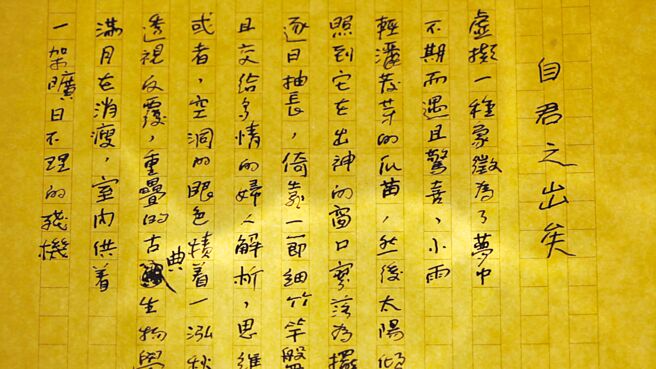 自君之出矣
虛擬一種象徵為了夢中
不期而遇且驚喜,小雨
輕灑發芽的瓜苗,然後太陽傾
照到它在出神的窗口寥落為擺
逐日抽長,倚靠一節細竹竿盤
且交給多情的婦人解析,思維
或者,空洞的眼色積着一泓秋
透視反覆,重疊的古典生物學
滿月在消瘦,室內供着
一架曠日不理的殘機